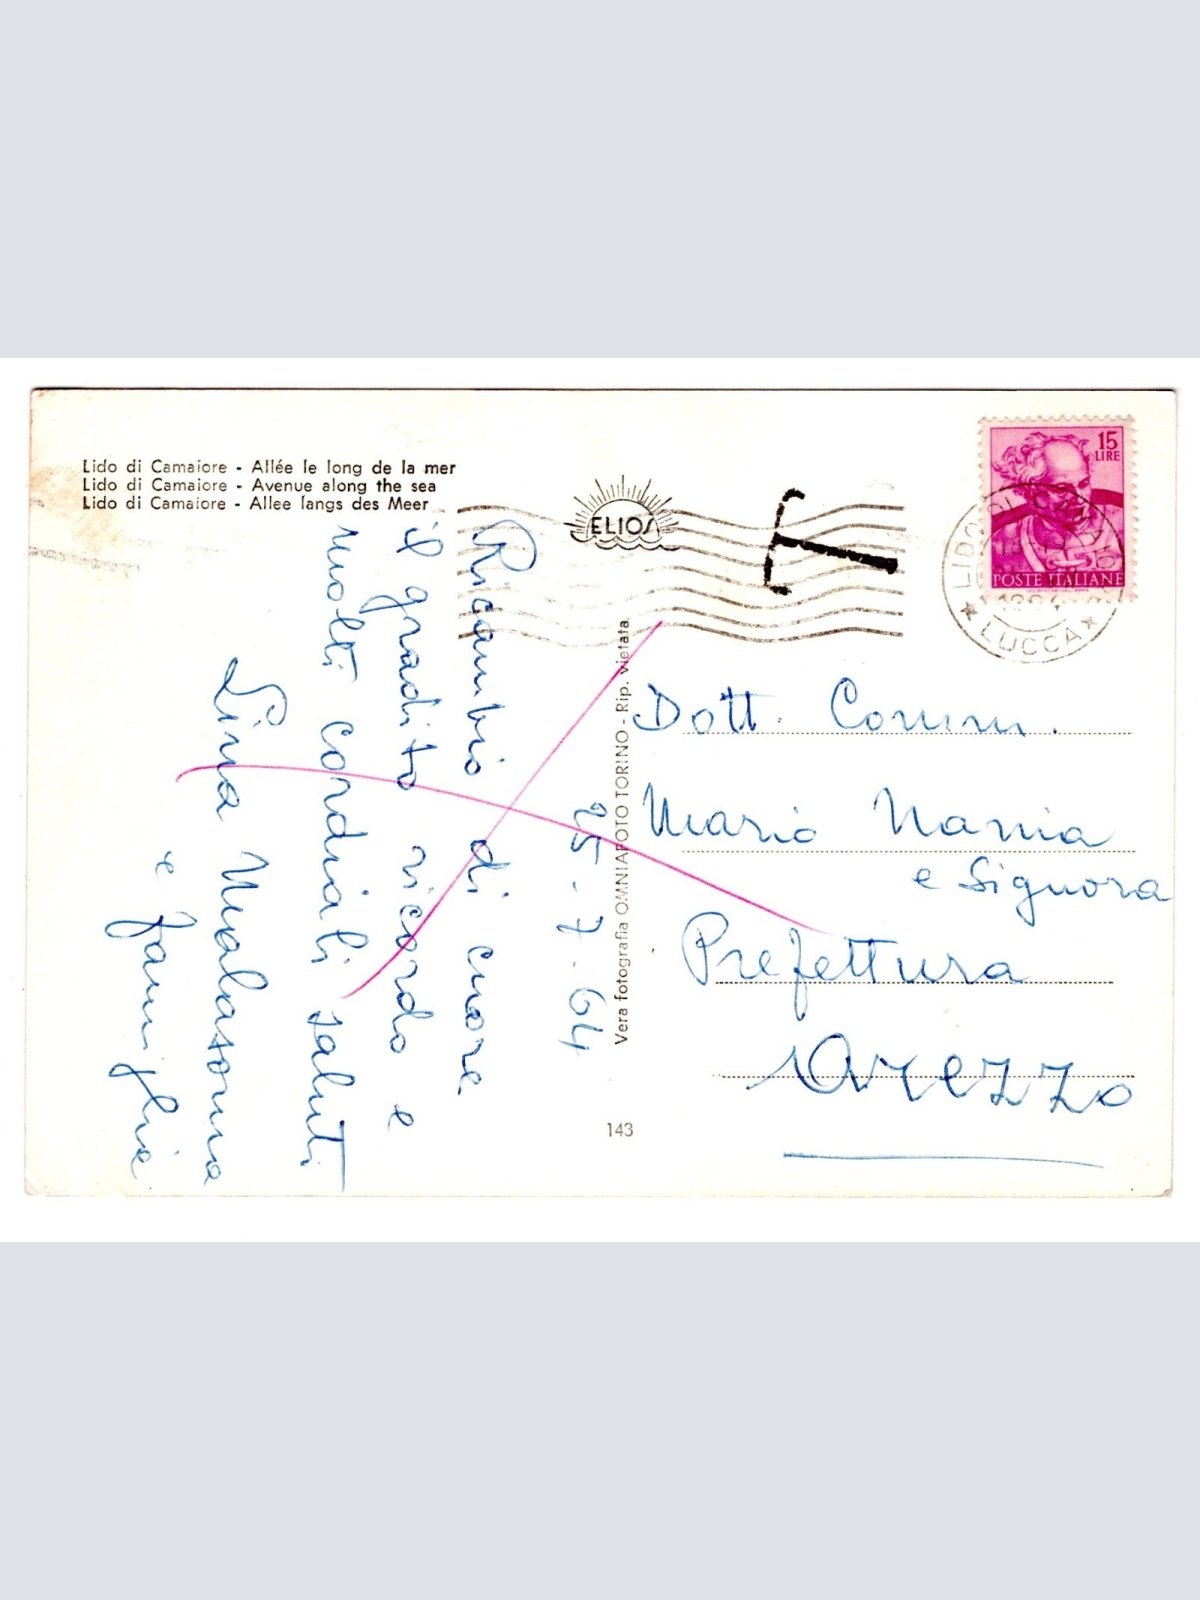 Lido di Camaiore - Allée le long de la mer
Lido di Camaiore - Avenue along the sea
Lido di Camaiore - Allee langs des Meer
ELIOS
T
15
LIRE
POSTE ITALIANE
LIDO DI CAMAIORE
LUCCA
25-7-64
Ricambio di cuore
il gradito ricordo e
molti cordiali saluti
Lina Malasoma
e famiglia
Vera fotografia OMNIAFOTO TORINO - Rip. vietata
143
Dott. Comm.
Mario Nania
e Signora
Prefettura
Arezzo